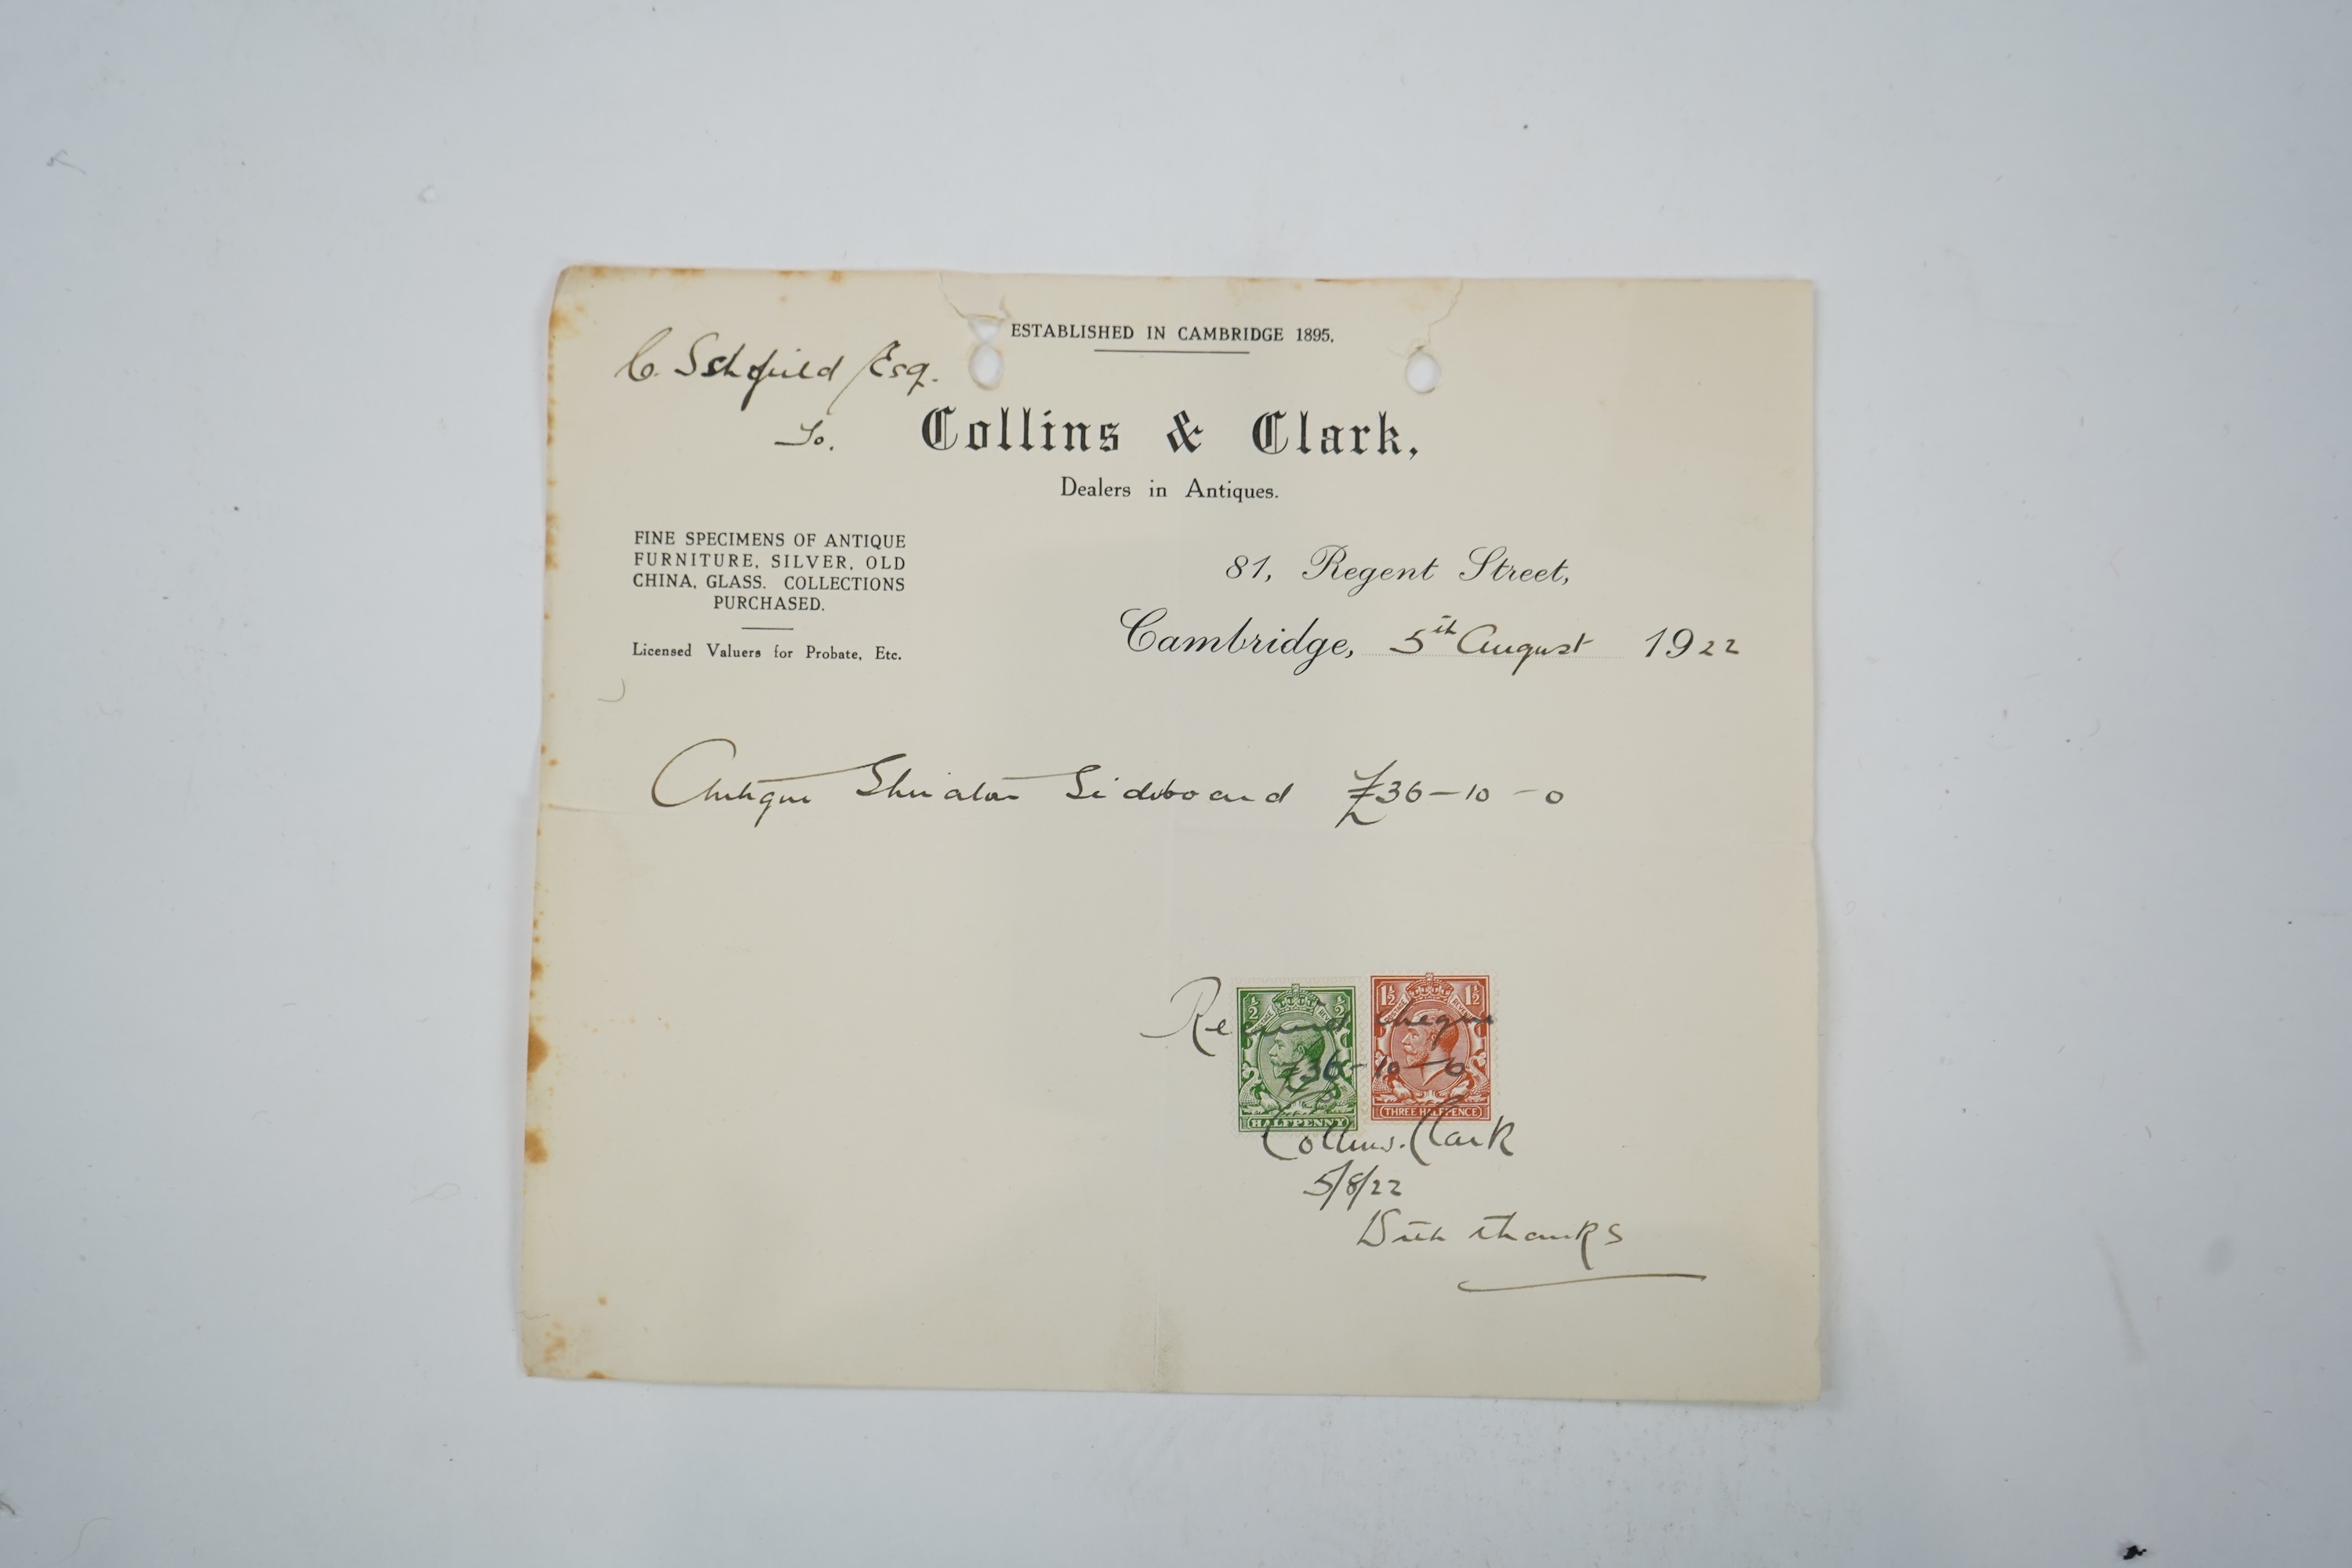 ESTABLISHED IN CAMBRIDGE 1895.
C. Schofield Esq.
To. Collins & Clark,
Dealers in Antiques.
FINE SPECIMENS OF ANTIQUE
FURNITURE, SILVER, OLD
CHINA, GLASS. COLLECTIONS
PURCHASED.
Licensed Valuers for Probate, Etc.
81, Regent Street,
Cambridge, 5th August 1922
Antique Sheraton Sideboard £36-10-0
Received cheque
£36-10-0
Collins. Clark
5/8/22
With thanks
½ ½
POSTAGE REVENUE
HALFPENNY
1½ 1½
POSTAGE REVENUE
THREE HALFPENCE